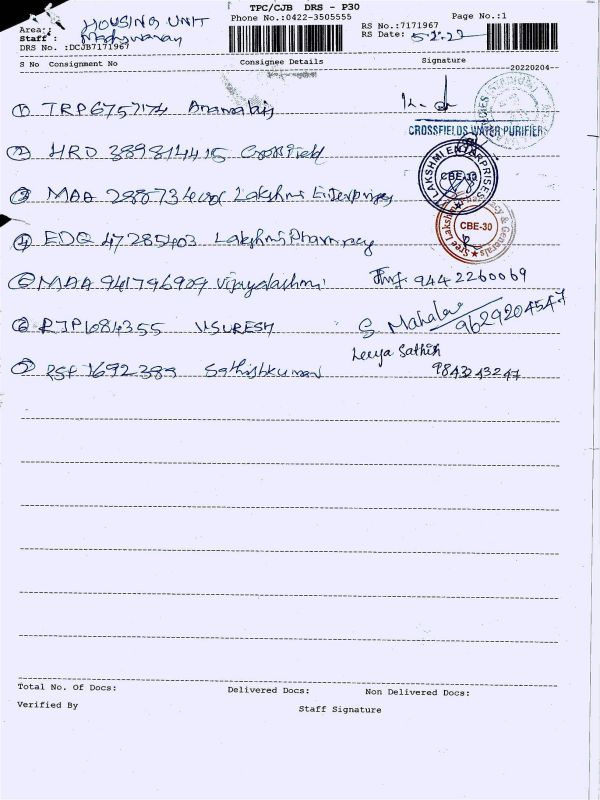 TPC/CJB DRS - P30
Area : HOUSING UNIT
Phone No.:0422-3505555
RS No.:7171967
Page No.:1
Staff :
RS Date: 5-2-22
DRS No. :DCJB7171967
S No Consignment No Consignee Details Signature
20220204
① TRP6757174
CROSSFIELDS WATER PURIFIER
② HRD 389814415 Crossfield
LAKSHMI ENTERPRISES
CBE-30
③ MAA Lakshmi Enterprises
CBE-30
④ EDQ 47285403 Lakshmi Pharmacy
⑤ MAA 941796909 Vijayalashmi 9442260069
⑥ RJP1684355 V.SURESH S Mahala 9629204547
Leeya Sathish
⑦ 1692389 Sathishkumar 9843243247
Total No. Of Docs: Delivered Docs: Non Delivered Docs:
Verified By Staff Signature